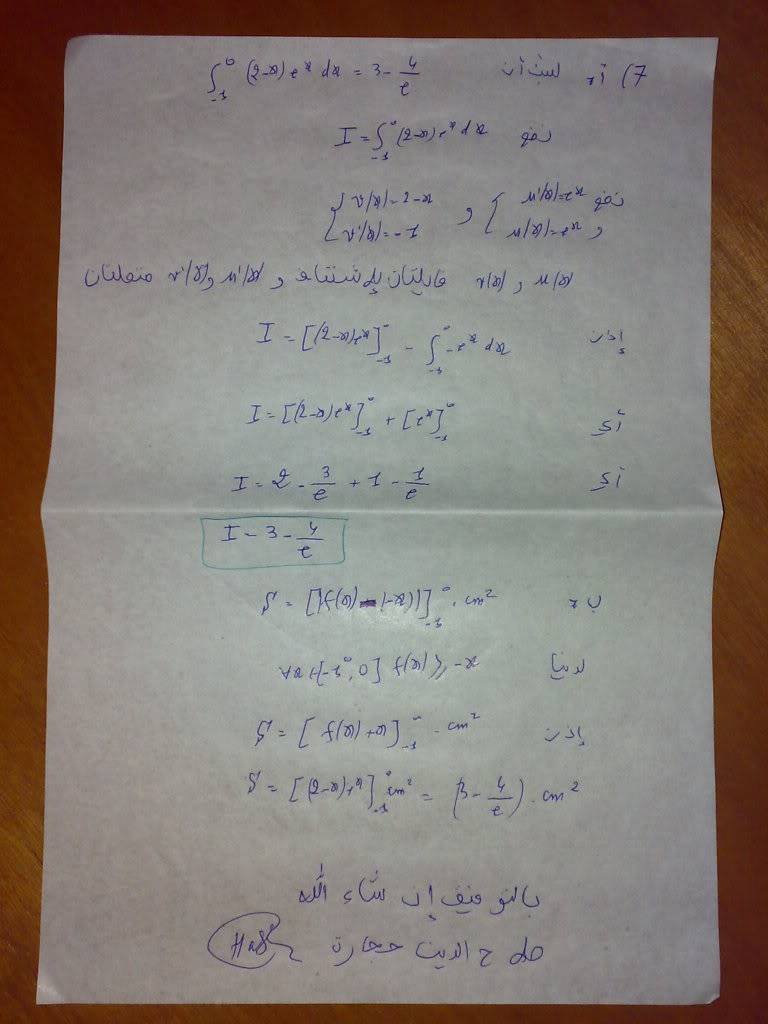 7) أ- لنبين أن ∫₋₁⁰ (2-x) eˣ dx = 3 - 4/e
نضع I = ∫₋₁⁰ (2-x) eˣ dx
نضع { u'(x) = eˣ و u(x) = eˣ و { v(x) = 2-x v'(x) = -1
u(x) و v(x) قابلتان للاشتقاق و u'(x) و v'(x) متصلتان
إذن I = [(2-x)eˣ]₋₁⁰ - ∫₋₁⁰ -eˣ dx
أي I = [(2-x)eˣ]₋₁⁰ + [eˣ]₋₁⁰
أي I = 2 - 3/e + 1 - 1/e
I = 3 - 4/e
ب- S = [|f(x) - (-x)|]₋₁⁰ . cm²
لدينا ∀x∈[-1,0] f(x) ⩾ -x
إذن S = [f(x)+x]₋₁⁰ . cm²
S = [(2-x)eˣ]₋₁⁰ cm² = (3 - 4/e) . cm²
بالتوفيق إن شاء الله
صلاح الدين حجارة